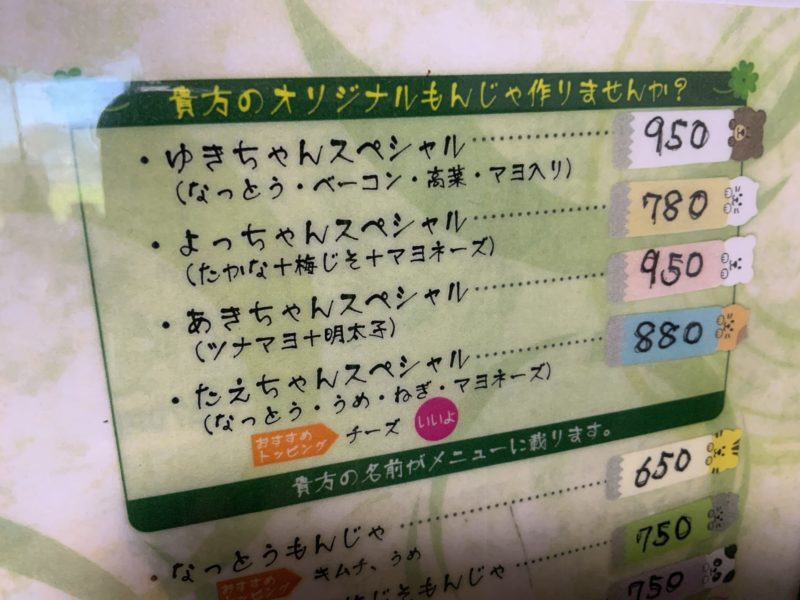 貴方のオリジナルもんじゃ作りませんか？
・ゆきちゃんスペシャル 950
(なっとう・ベーコン・高菜・マヨ入り)
・よっちゃんスペシャル 780
(たかな＋梅じそ＋マヨネーズ)
・あきちゃんスペシャル 950
(ツナマヨ＋明太子)
・たえちゃんスペシャル 880
(なっとう・うめ・ねぎ・マヨネーズ)
おすすめトッピング チーズ いいよ
貴方の名前がメニューに載ります。
・なっとうもんじゃ 650
おすすめトッピング キムチ、うめ
750
梅じそもんじゃ 750